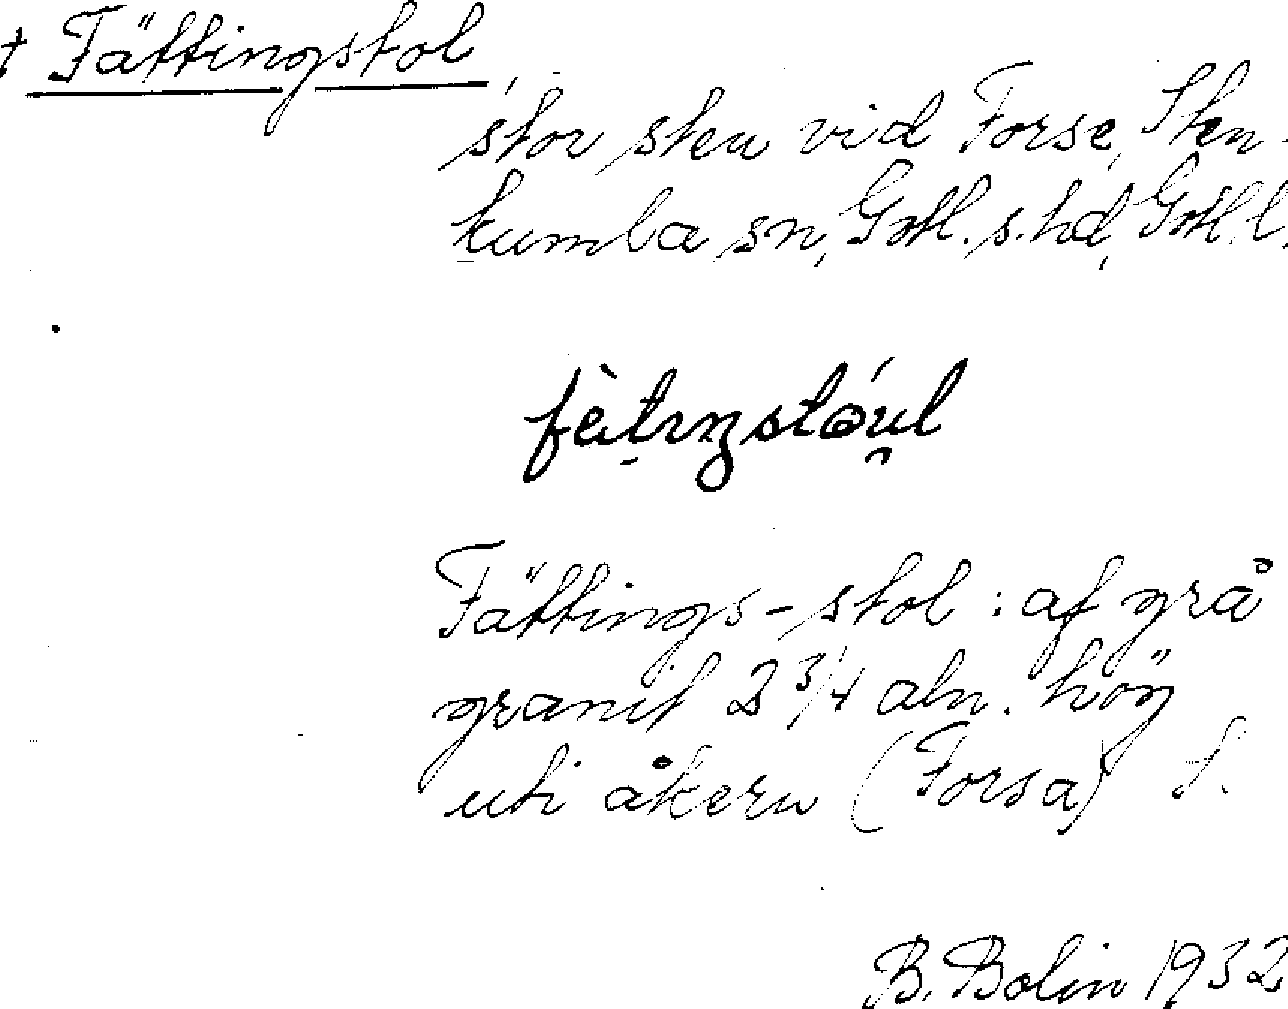 † Fättingstol,
stor sten vid Forse, Sten-
kumla sn, Gotl. s. hd, Gotl. l.
fètɪŋstóu̯l
Fättings-stol : af grå
granit 2 3/4 aln. hög
uti åkern (Forsa) S.
B. Bolin 1932